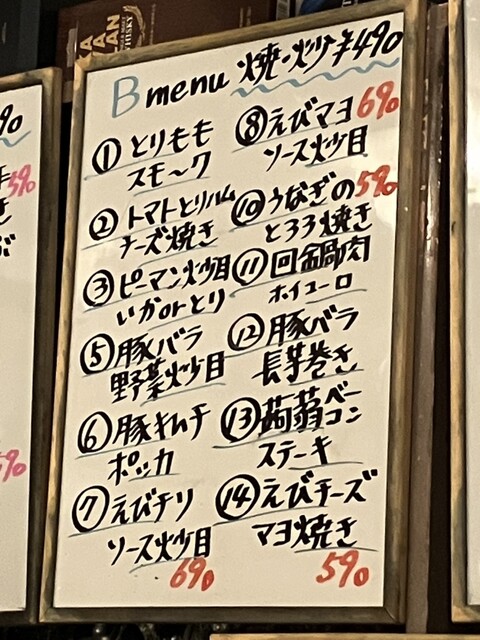 B menu 焼・炒 ¥490
① とりもも
スモ〜ク
② トマトとりハム
チーズ焼き
③ ピーマン炒目
いかorとり
⑤ 豚バラ
野菜炒目
⑥ 豚キムチ
ポッカ
⑦ えびチリ
ソース炒目
690
⑧ えびマヨ 690
ソース炒目
⑩ うなぎの 590
とろろ焼き
⑪ 回鍋肉
ホイコーロ
⑫ 豚バラ
長芋巻き
⑬ 蒟蒻ベーコン
ステーキ
⑭ えびチーズ
マヨ焼き
590